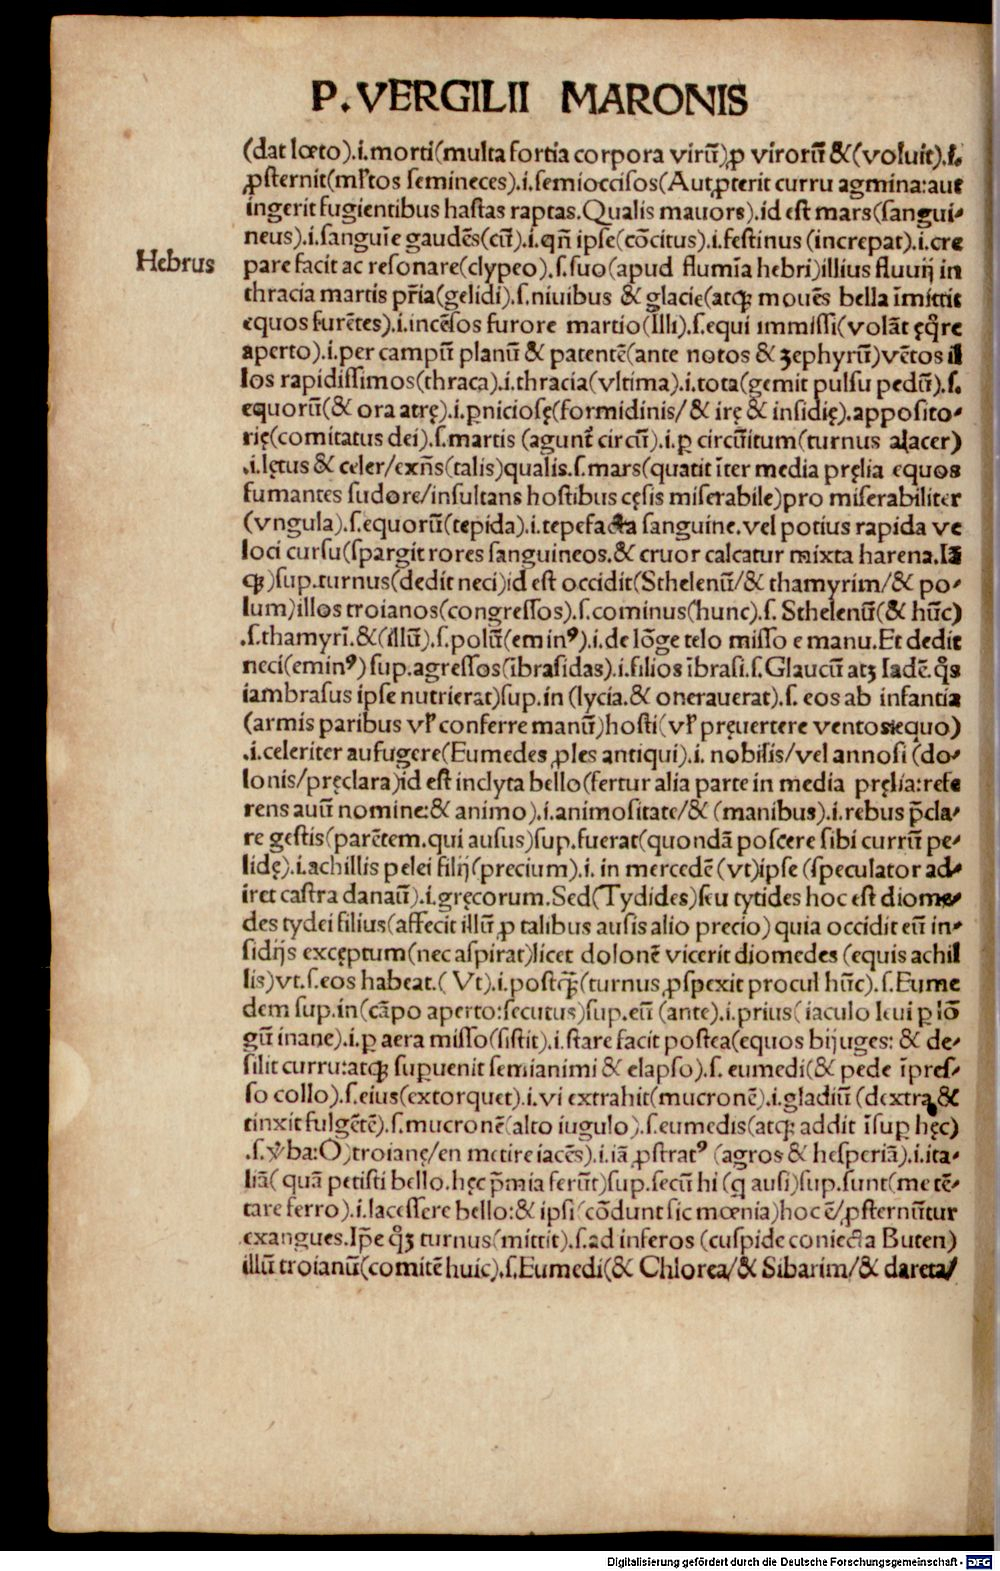 P. VERGILII MARONIS
(dat lœto).i.morti(multa fortia corpora virū)ꝓ virorū &(voluit).ſ.
ꝓſternit(mƚtos ſemineces).i.ſemiocciſos(Aut ꝓterit curru agmina:aut
ingerit fugientibus haſtas raptas.Qualis mauors).id eſt mars(ſangui-
neus).i.ſanguīe gaudēs(cū).i.qn̄ ipſe(cōcitus).i.feſtinus (increpat).i.cre
Hebrus
pare facit ac reſonare(clypeo).ſ.ſuo(apud flumīa hebri)illius fluuij in
thracia martis pr̄ia(gelidi).ſ.niuibus & glacie(atqꝫ mouēs bella īmittit
equos furētes).i.incēſos furore martio(Illi).ſ.equi immiſſi(volāt ęq̄re
aperto).i.per campū planū & patentē(ante notos & zephyrū)vētos il
los rapidiſſimos(thraca).i.thracia(vltima).i.tota(gemit pulſu pedū).ſ.
equorū(& ora atrę).i.ꝑnicioſę(formidinis/& irę & inſidię).appoſito-
rię(comitatus dei).ſ.martis (agunt᷑ circū).i.ꝑ circūitum(turnus alacer)
.i.lętus & celer/exn̄s(talis)qualis.ſ.mars(quatit īter media pręlia equos
fumantes ſudore/inſultans hoſtibus cęſis miſerabile)pro miſerabiliter
(vngula).ſ.equorū(tepida).i.tepefacta ſanguine.vel potius rapida ve
loci curſu(ſpargit rores ſanguineos.& cruor calcatur mixta harena.Iā
qꝫ)ſup.turnus(dedit neci)id eſt occidit(Sthelenū/& thamyrim/& po-
lum)illos troianos(congreſſos).ſ.cominus(hunc).ſ. Sthelenū(& hūc)
.ſ.thamyrī.&(illū).ſ.polū(eminꝰ).i.de lōge telo miſſo e manu.Et dedit
neci(eminꝰ)ſup.agreſſos(ībraſidas).i.filios ībraſi.ſ.Glaucū atqꝫ Iadē.q̄s
iambraſus ipſe nutrierat)ſup.in (lycia.& onerauerat).ſ. eos ab infantia
(armis paribus vƚ conferre manū)hoſti(vƚ pręuertere ventos equo)
.i.celeriter aufugere(Eumedes ꝓles antiqui).i. nobilis/vel annoſi (do-
lonis/pręclara)id eſt inclyta bello(fertur alia parte in media pręlia:refe
rens auū nomine:& animo).i.animoſitate/& (manibus).i.rebus p̄cla-
re geſtis(parētem.qui auſus)ſup.fuerat(quondā poſcere ſibi currū pe-
lidę).i.achillis pelei filij(precium).i. in mercedē (vt)ipſe (ſpeculator ad-
iret caſtra danaū).i.gręcorum.Sed(Tydides)ſeu tytides hoc eſt diome-
des tydei filius(affecit illū ꝓ talibus auſis alio precio) quia occidit eū in-
ſidijs excęptum(nec aſpirat)licet dolonē vicerit diomedes (equis achil
lis)vt.ſ.eos habeat.( Vt).i.poſtqꝫ̄(turnus ꝓſpexit procul hūc).ſ.Eume
dem ſup.in(cāpo aperto:ſecutus)ſup.eū (ante).i.prius( iaculo leui ꝑ lō
gū inane).i.ꝑ aera miſſo(ſiſtit).i.ſtare facit poſtea(equos bijuges: & de-
ſilit curru:atqꝫ ſuꝑuenit ſemianimi & elapſo).ſ. eumedi(& pede īpreſ-
ſo collo).ſ.eius(extorquet).i.vi extrahit(mucronē).i.gladiū (dextra &
tinxit fulgētē).ſ.mucronē(alto iugulo).ſ.eumedis(atqꝫ addit īſuꝑ hęc)
.ſ.v̄ba:O)troianę/en metire iacēs).i.iā ꝓſtratꝰ (agros & heſperiā).i.ita-
liā( quā petiſti bello.hęc p̄mia ferūt)ſup.ſecū hi (q auſi)ſup.ſunt(me tē-
tare ferro).i.laceſſere bello:& ipſi(cōdunt ſic mœnia)hoc ē/ꝓſternūtur
exangues.Ip̄e qꝫ̄ turnus(mittit).ſ.ad inferos (cuſpide coniecta Buten)
illū troianū(comitē huic).ſ.Eumedi(& Chlorea/& Sibarim/& dareta/
Digitalisierung gefördert durch die Deutsche Forschungsgemeinschaft - DFG